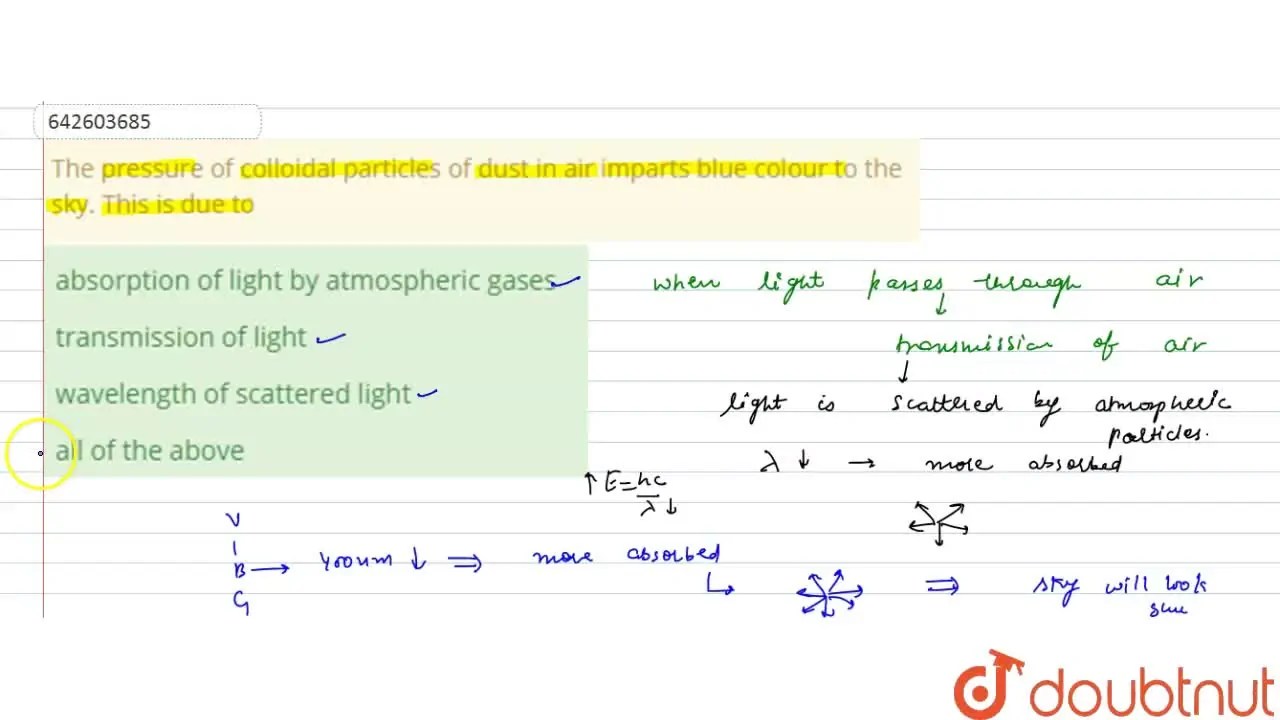 642603685
The pressure of colloidal particles of dust in air imparts blue colour to the
sky. This is due to
absorption of light by atmospheric gases
when light passes through air
transmission of light
transmission of air
wavelength of scattered light
light is scattered by atmospheric
particles.
all of the above
λ ↓ → more absorbed
↑ E = hc
λ ↓
V
I
B → 400nm ↓ ⇒ more absorbed
⇒ sky will look
G
doubtnut